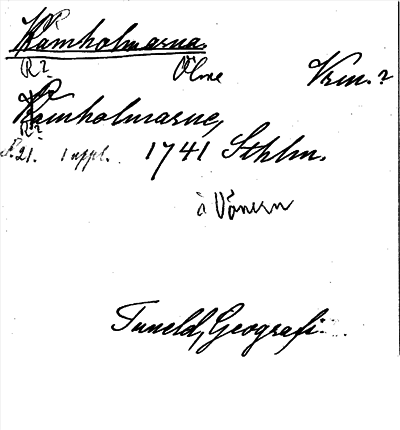 Kamholmarna
R? Ölme Vrm.?
Kamholmarne,
R?
s. 21. 1 uppl. 1741 Sthlm.
à Vänern
Tuneld, Geografi